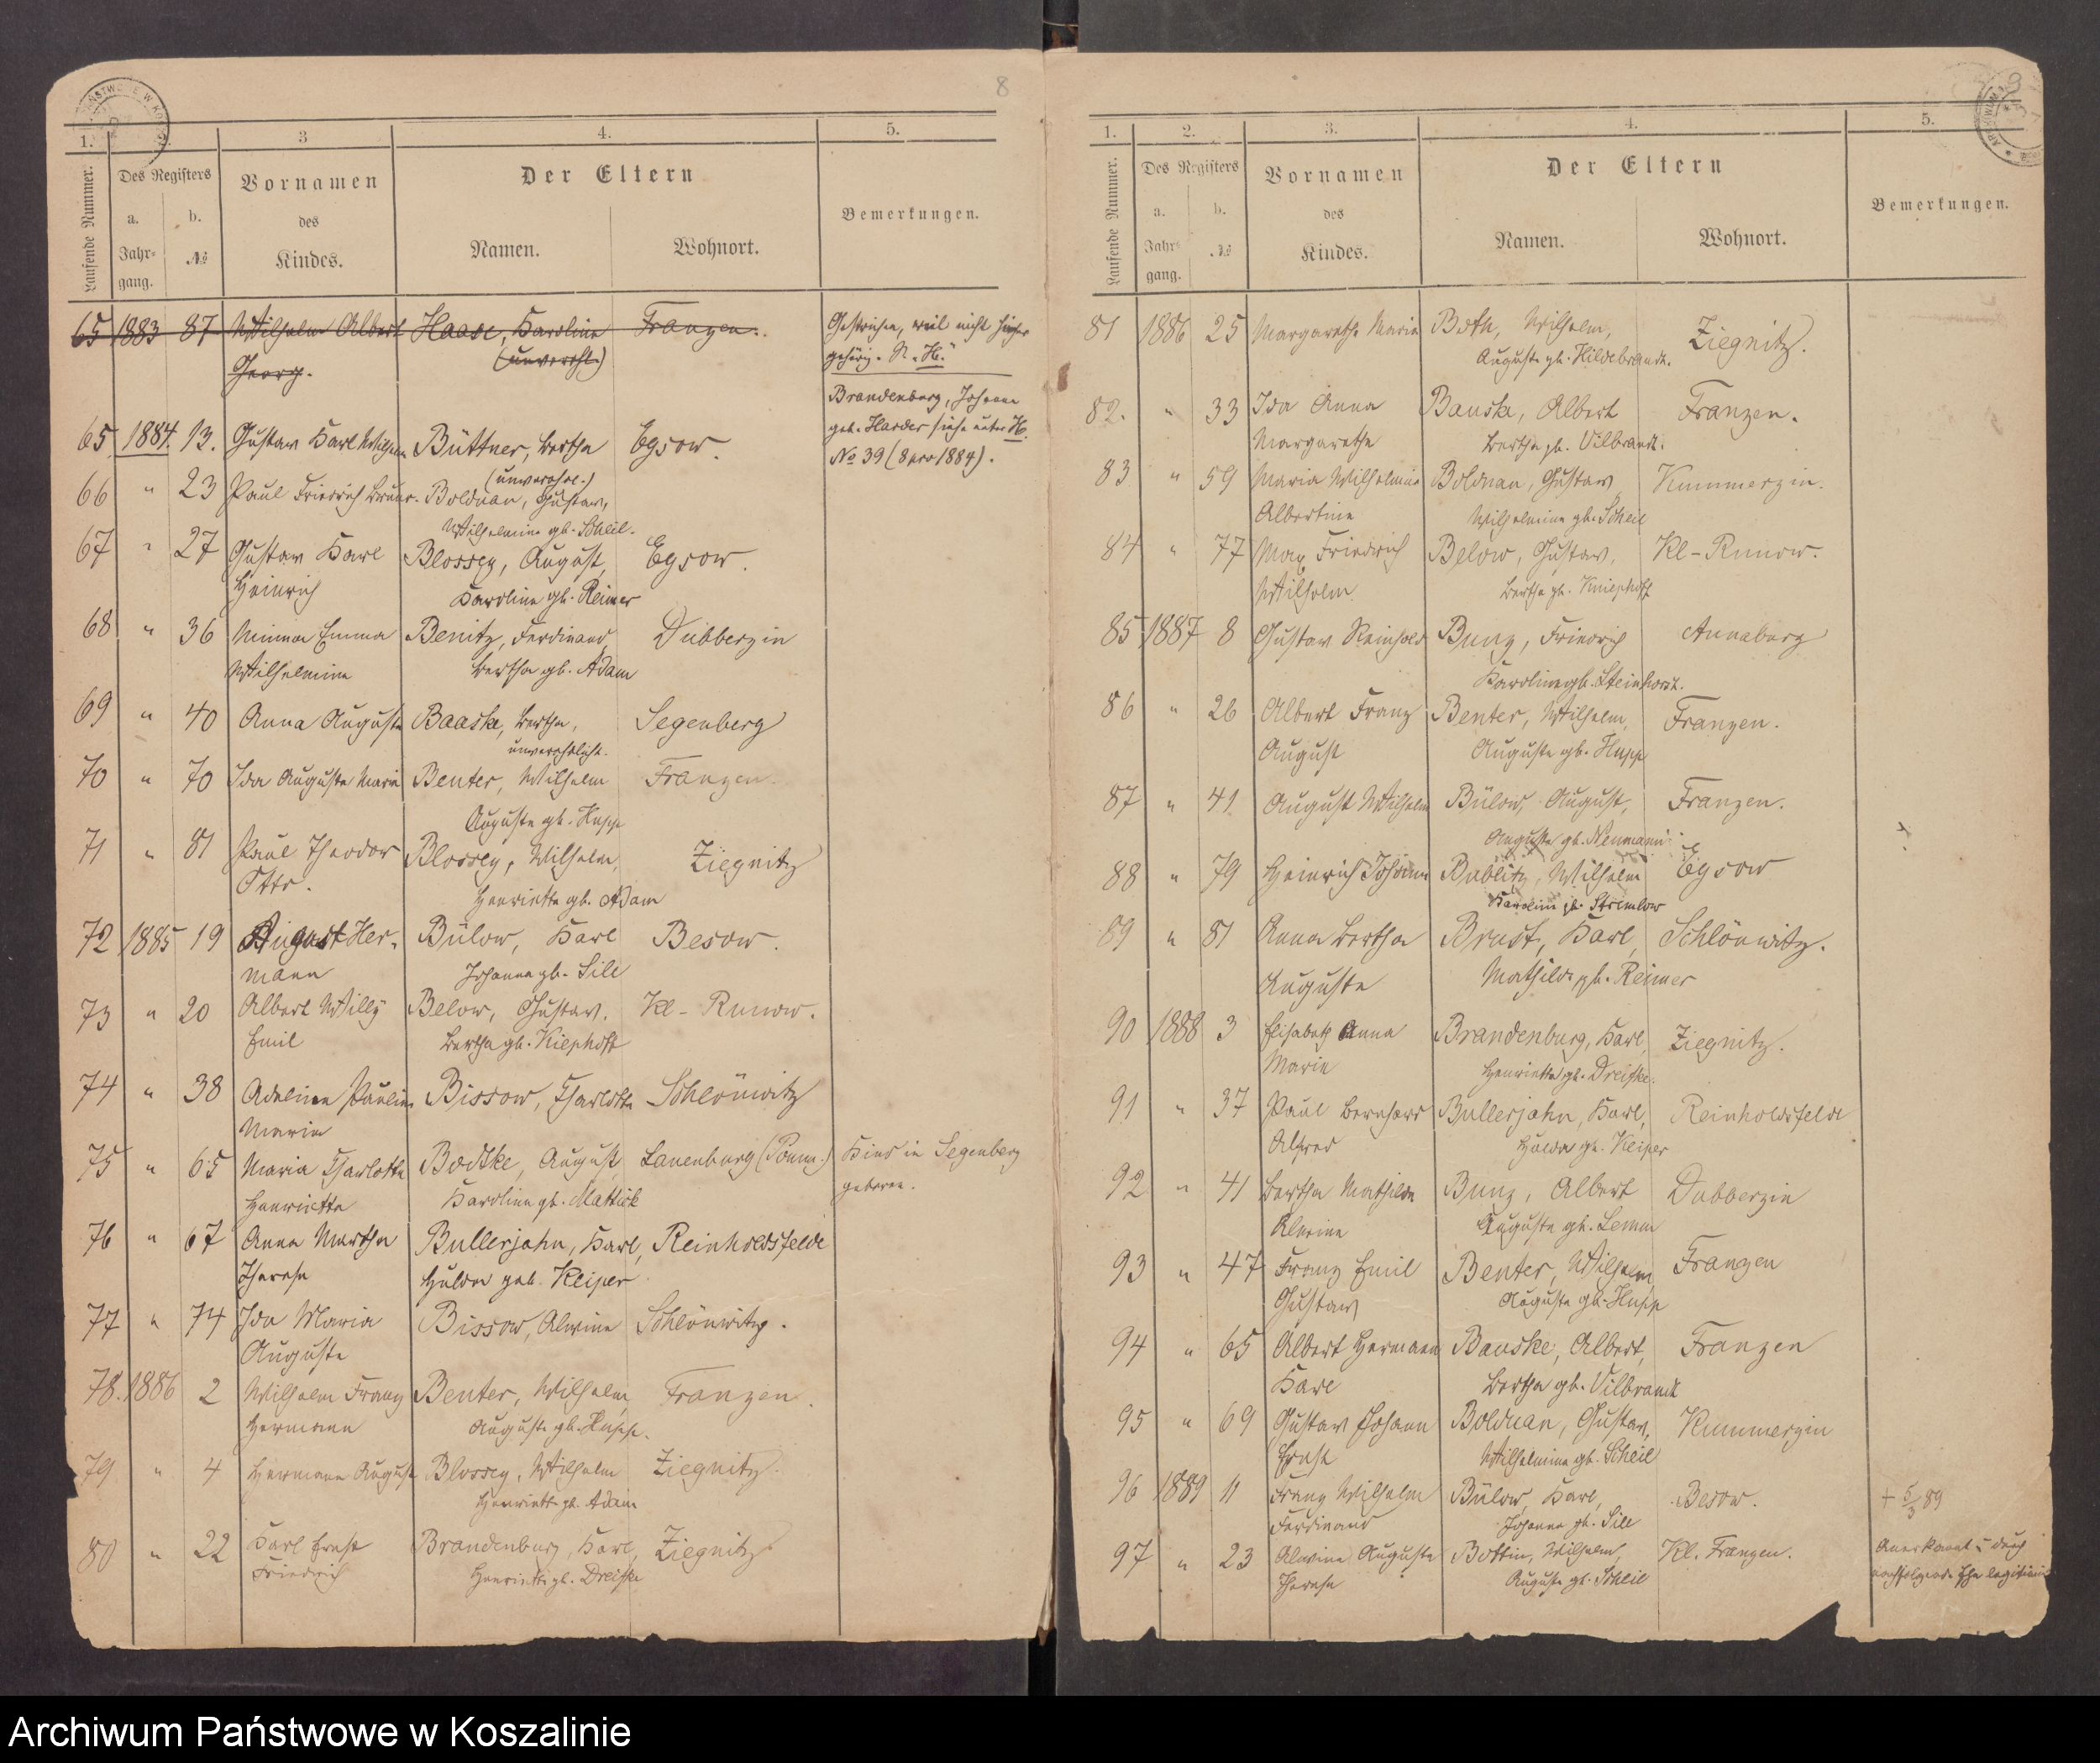 8
1. 2. 3 4. 5.
Laufende Nummer.
Des Registers
a. Jahrgang. b. №
Vornamen des Kindes.
Der Eltern
Namen. Wohnort.
Bemerkungen.
65 1883 87 Wilhelm Albert Haase, Karoline Franzen. Gestrichen, weil nicht hierher
Georg. (unverehl.) gehörig. S. "H."
Brandenburg, Johanna
65 1884. 13. Gustav Karl Wilhelm Büttner, Bertha Egsow. geb. Harder siehe unter H.
(unverehel.) № 39 (8 pro 1884).
66 " 23 Paul Friedrich Boldnan, Gustav,
Wilhelmine gb. Scheil.
67 " 27 Gustav Karl Blossey, August, Egsow.
Heinrich Karoline gb. Reimer
68 " 36 Minna Emma Benitz, Ferdinand Dübberzin
Wilhelmine Bertha gb. Adam
69 " 40 Anna Auguste Baaske, Bertha, Segenberg
unverehelicht.
70 " 70 Ida Auguste Maria Benter, Wilhelm Franzen.
Auguste gb. Hupp
71 " 81 Paul Theodor Blossey, Wilhelm, Ziegnitz
Otto. Henriette gb. Adam
72 1885 19 August Her- Bülow, Karl Besow.
mann Johanna gb. Sill
73 " 20 Albert Willy Below, Gustav. Kl - Runow.
Emil Bertha gb. Kiephoff
74 " 38 Adeline Pauline Bissow, Charlotte Schlönwitz
Maria
75 " 65 Maria Charlotte Bodtke, August, Lauenburg (Pomm.) Kind in Segenberg
Henriette Karoline gb. Mattick geboren.
76 " 67 Anna Martha Bullerjahn, Karl, Reinholdsfelde
Therese Hulda geb. Keiper
77 " 74 Ida Maria Bissow, Alwine Schlönwitz.
Auguste
78. 1886 2 Wilhelm Franz Benter, Wilhelm, Franzen.
Hermann Auguste gb. Hupp.
79 " 4 Hermann August Blossey, Wilhelm Ziegnitz.
Henriette gb. Adam
80 " 22 Karl Ernst Brandenburg, Karl, Ziegnitz
Friedrich Henriette gb. Dreifke
9
1. 2. 3. 4. 5.
Laufende Nummer.
Des Registers
a. Jahrgang. b. №
Vornamen des Kindes.
Der Eltern
Namen. Wohnort.
Bemerkungen.
81 1886 25 Margarethe Marie Both, Wilhelm, Ziegnitz.
Auguste gb. Hildebrandt.
82. " 33 Ida Anna Bauske, Albert Franzen.
Margarethe Bertha gb. Vilbrandt.
83 " 59 Maria Wilhelmine Boldnan, Gustav Kummerzin.
Albertine Wilhelmine gb. Scheil
84 " 77 Max Friedrich Below, Gustav, Kl-Runow.
Wilhelm Bertha gb. Kniephoff
85 1887 8 Gustav Reinhold Bunz, Friedrich Annaberg
Karoline gb. Steinhorst.
86 " 26 Albert Franz Benter, Wilhelm, Franzen.
August Auguste gb. Hupp
87 " 41 August Wilhelm Bülow, August, Franzen.
Auguste gb. Neumann
88 " 79 Heinrich Johann Bublitz, Wilhelm Egsow
Karoline gb. Stremlow
89 " 81 Anna Bertha Brust, Karl, Schlönwitz.
Auguste Mathilde gb. Reimer
90 1888 3 Elisabeth Anna Brandenburg, Karl, Ziegnitz.
Marie Henriette gb. Dreifke.
91 " 37 Paul Bernhard Bullerjahn, Karl, Reinholdsfelde
Alfred Hulda gb. Keiper
92 " 41 Bertha Mathilde Bunz, Albert Dubberzin
Alwine Auguste gb. Lemm
93 " 47 Franz Emil Benter, Wilhelm Franzen
Gustav Auguste gb. Hupp
94 " 65 Albert Hermann Bauske, Albert, Franzen
Karl Bertha gb. Vilbrandt
95 " 69 Gustav Johann Boldnan, Gustav, Kummerzin
Ernst Wilhelmine gb. Scheil
96 1889 11 Franz Wilhelm Bülow, Karl, Besow. + 5/3 89
Ferdinand Johanna gb. Sill
97 " 23 Alwine Auguste Bottin, Wilhelm, Kl. Franzen. Anerkannt u. durch
Therese Auguste gb. Scheil nachfolgende Ehe legitimirt
Archiwum Państwowe w Koszalinie